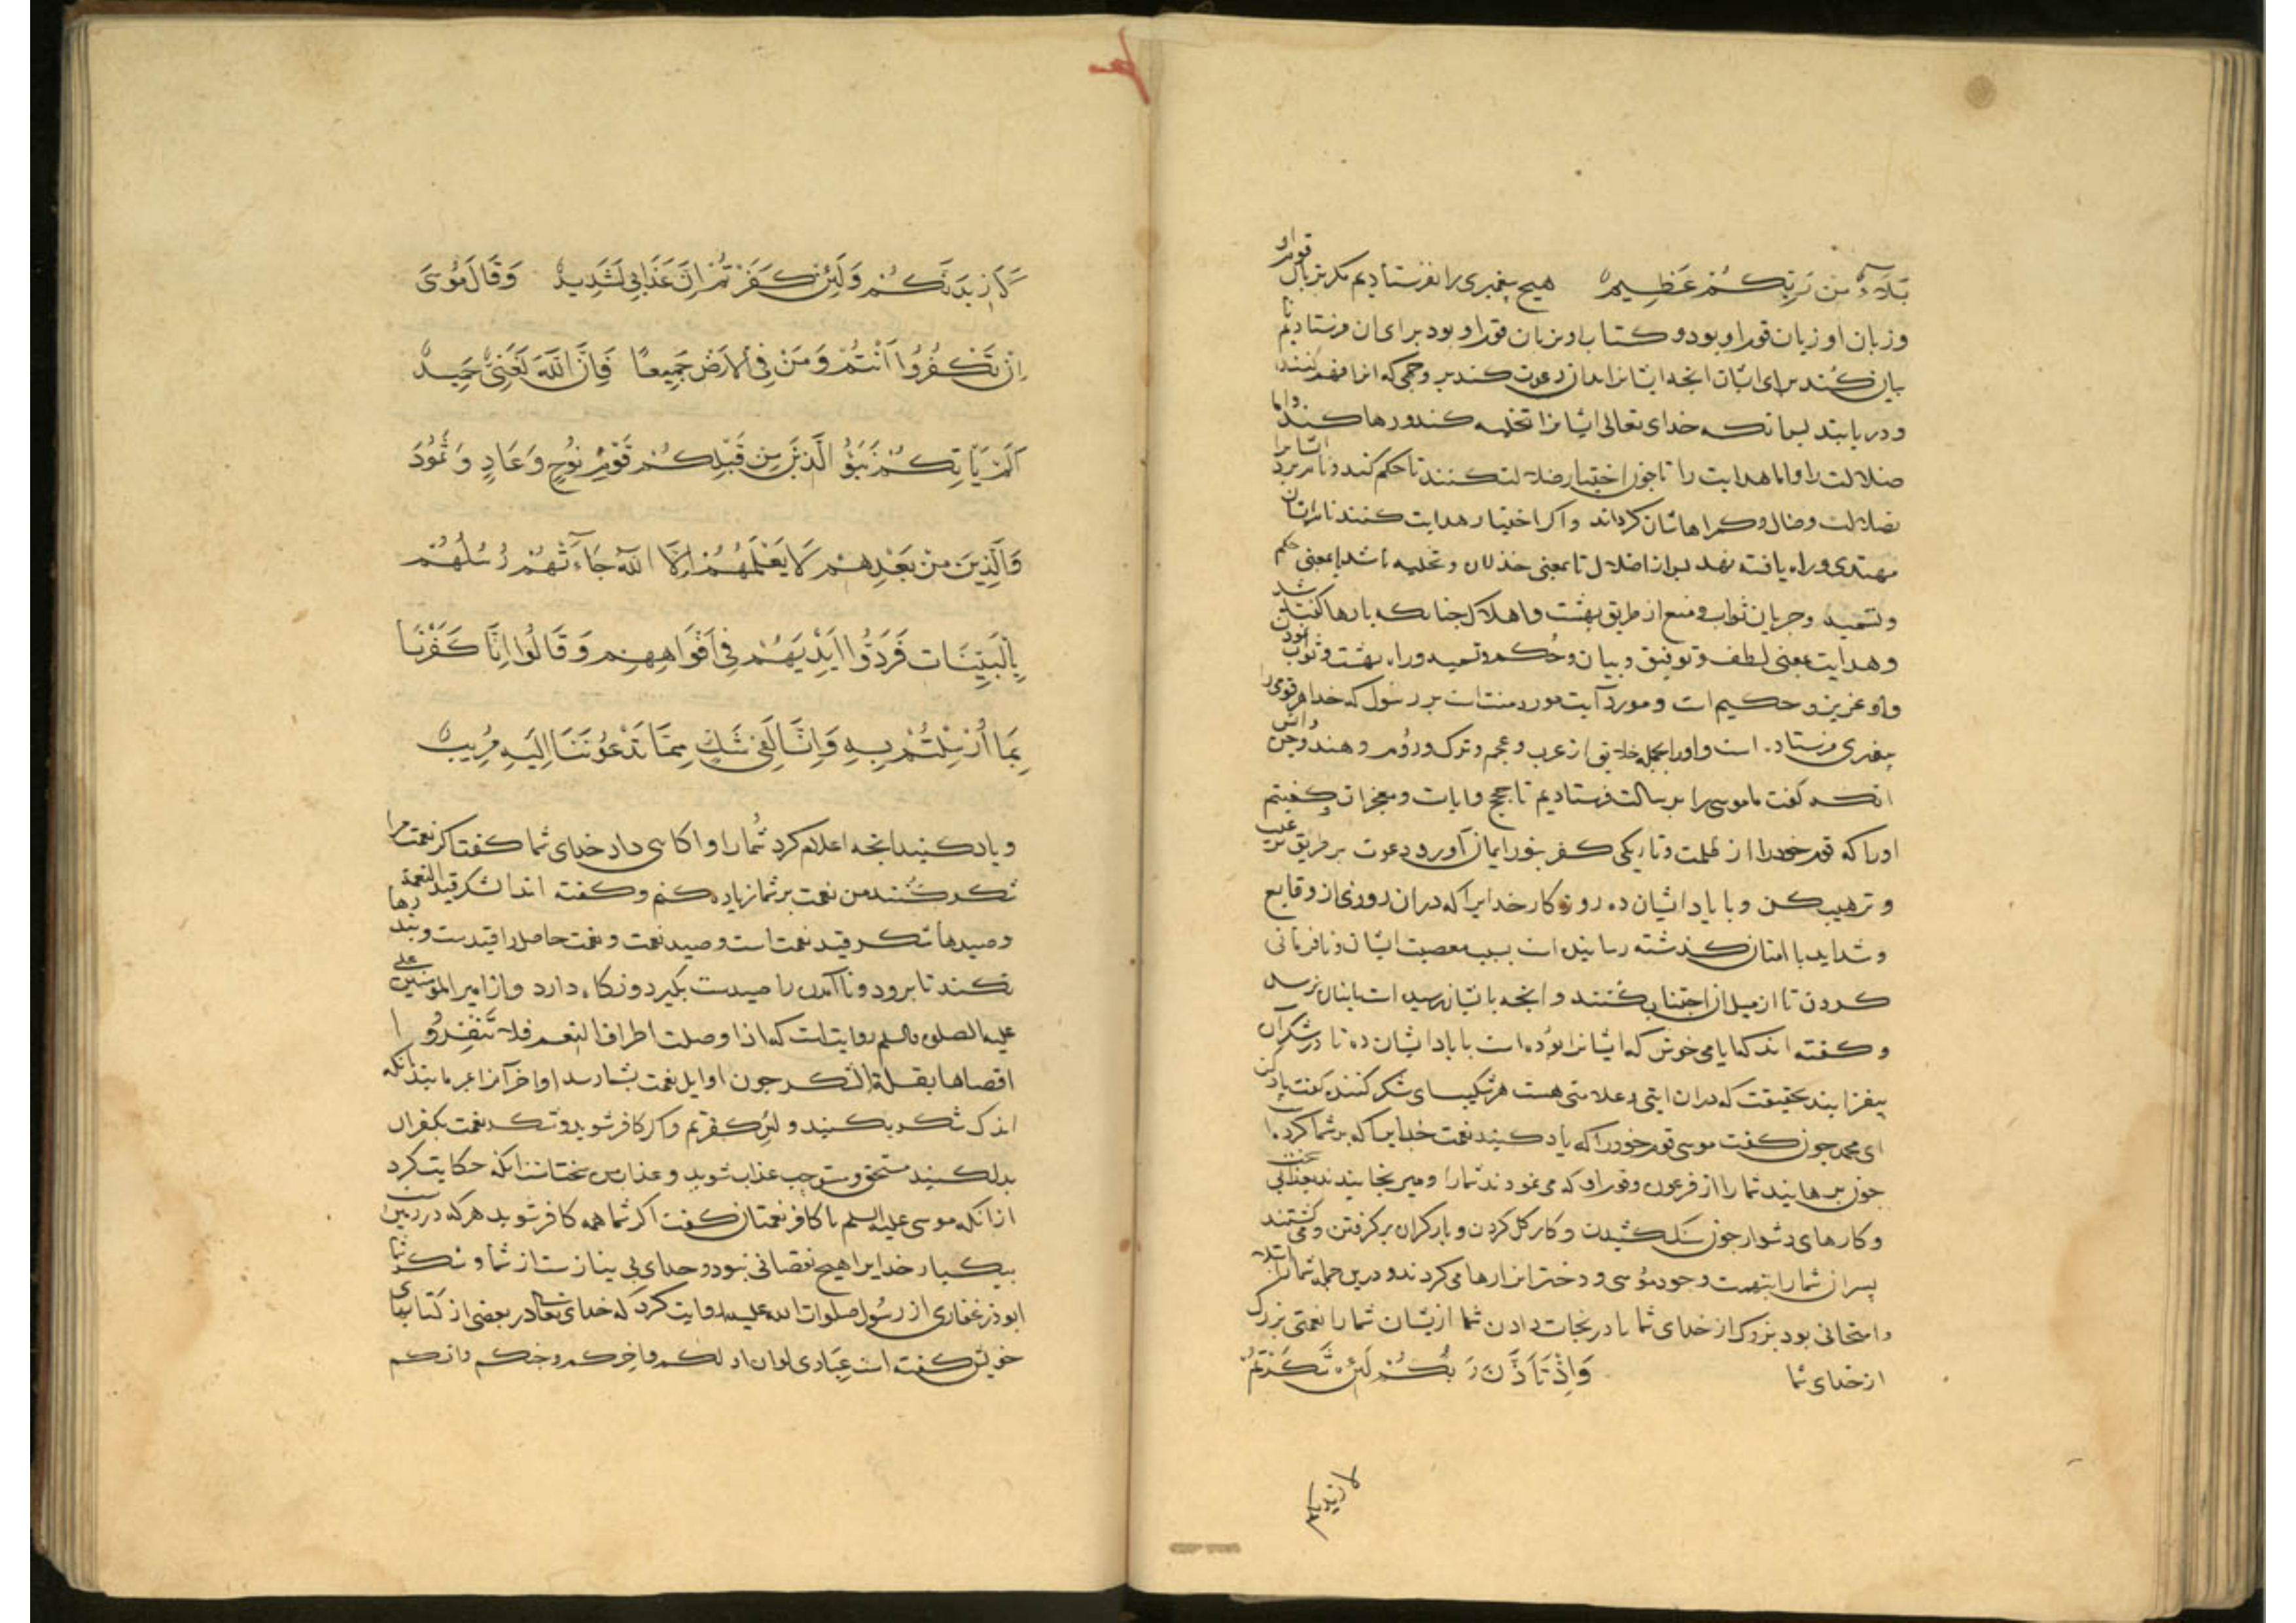 بَلَاءٌ مِن رَبِّكُمْ عَظِيم هیچ پیغمبری را نفرستادیم مکر بزبان قوم او
و زبان او زبان قوم او بود و کتاب او بزبان قوم او بود برای ان فرستادیم تا
بیان کند برای ایشان انجه ایشانرا بدان دعوت کند بر وجهی که انرا فهم کنند
و دریابند بس انکه خدای تعالی ایشانرا تخلیه کند و رها کند و اما
ضلالت را و اما هدایت را تا جون اختیار ضلالت کنند تا حکم کند و نام برد ایشانرا
بضلالت و ضال و کمراهاشان کرداند و اکر اختیار هدایت کنند نامشان
مهتدی و راه یافته نهد بس اضلال تا بمعنی خذلان و تخلیه باشد یا بمعنی حکم
و تسمیه و حرمان ثواب و منع از طریق بهشت و اهلاک جنانکه بارها کفته شد
و هدایت بمعنی لطف و توفیق و بیان و حُکم و تسمیه و راه بهشت و ثواب بود
و او عزیز و حکیم است و مورد آیت مورد منتست بر رسول که خدا هر قومی را
بیغمبری فرستاده است و اورا بجمله خلایق از عرب و عجم و ترک و روم و هند و جن و انس
انکه کفت ما موسی را برسالت فرستادیم تا حجج و ایات و معجزات و کفتیم
اورا که قوم خود را از ظلمت و تاریکی کفر بنور ایمان آور و دعوت بر طریق ترغیب
و ترهیب کن و با یاد ایشان ده روزکار خدایرا که دران روزی از وقایع
و شداید با امتان کذشته رسانیده است بسبب معصیت ایشان و نافرمانی
کردن تا از میل ان اجتناب کنند و انجه بایشان رسیده است باینان نرسد
و کفته اند که ایامی خوش که ایشانرا بوده است با یاد ایشان ده تا در شکر آن
بیفزایند بحقیقت که دران ایتی و علامتی هست هر شکیبای شکر کننده کفت یاد کن
ای محمد جون کفت موسی قوم خود را که یاد کنید نعمت خدایرا که بر شما کرد
جون برهانید شما را از فرعون و قوم او که می نمودند شما را و میرنجانیدند بعذابی سخت
و کارهای دشوار جون سنک کشیدن و کار کل کردن و بار کران بر کرفتن و می کشتند
بسران شما را بتهمت وجود موسی و دخترانرا رها می کردند و درین جمله شما را ابتلا
و امتحانی بود بزرک از خدای شما یا در نجات دادن شما ازیشان شما را نعمتی بزرک
از خدای شما وَاِذْ تَاَذَّنَ رَبُّكُمْ لَئِن شَكَرْتُمْ
لازیدنکم
لَاَزِيدَنَّكُمْ وَلَئِن كَفَرْتُمْ اِنَّ عَذَابِي لَشَدِيدٌ وَقَالَ مُوسَى
اِنْ تَكْفُرُوا اَنْتُمْ وَمَنْ فِي الْاَرْضِ جَمِيعًا فَاِنَّ اللَّهَ لَغَنِيٌّ حَمِيدٌ
اَلَمْ يَاْتِكُمْ نَبَؤُ الَّذِينَ مِن قَبْلِكُمْ قَوْمِ نُوحٍ وَعَادٍ وَثَمُودَ
وَالَّذِينَ مِنْ بَعْدِهِمْ لَا يَعْلَمُهُمْ اِلَّا اللَّهُ جَاءَتْهُمْ رُسُلُهُمْ
بِالْبَيِّنَاتِ فَرَدُّوا اَيْدِيَهُمْ فِي اَفْوَاهِهِمْ وَقَالُوا اِنَّا كَفَرْنَا
بِمَا اُرْسِلْتُمْ بِهِ وَاِنَّا لَفِي شَكٍّ مِمَّا تَدْعُونَنَا اِلَيْهِ مُرِيبٍ
و یاد کنید انجه اعلام کرد شما را و اکاهی داد خدای شما کفت اکر نعمت مرا
شکر کنند من نعمت بر شما زیاده کنم و کفته اند الشکر قید النعمة
و صیدها شکر قید نعمت است و صید نعمت و نعمت حاصل را قیدست و بند
کند تا برود و ناآمده را صیدست بکیرد و نکاه دارد و از امیر المؤمنین علی
علیه الصلوه والسلم روایتست که اذا وصلت اطراف النعم فلا تُنَفِّرُوا
اقصاها بقلة الشکر جون اوایل نعمت بشما رسد اواخر آنرا مرمانید بانکه
اندک شکر بکنید و لئن کفرتم و اکر کافر شوید و شکر نعمت بکفران
بدل کنید مستحق و مستوجب عذاب شوید و عذاب من سختست انکه حکایت کرد
ازانکه موسی علیه السلم با کافر نعمتان کفت اکر شما همه کافر شوید هر که در زمین
بیکبار خدایرا هیچ نقصانی نبود و خدای بی نیازست از شما و شکر شما
ابوذر غفاری از رسول صلوات الله علیه روایت کرد که خدای تعالی در بعضی از کتابهای
خویش کفته است عِبَادی لو ان اولکم و اخرکم و جنکم و انسکم